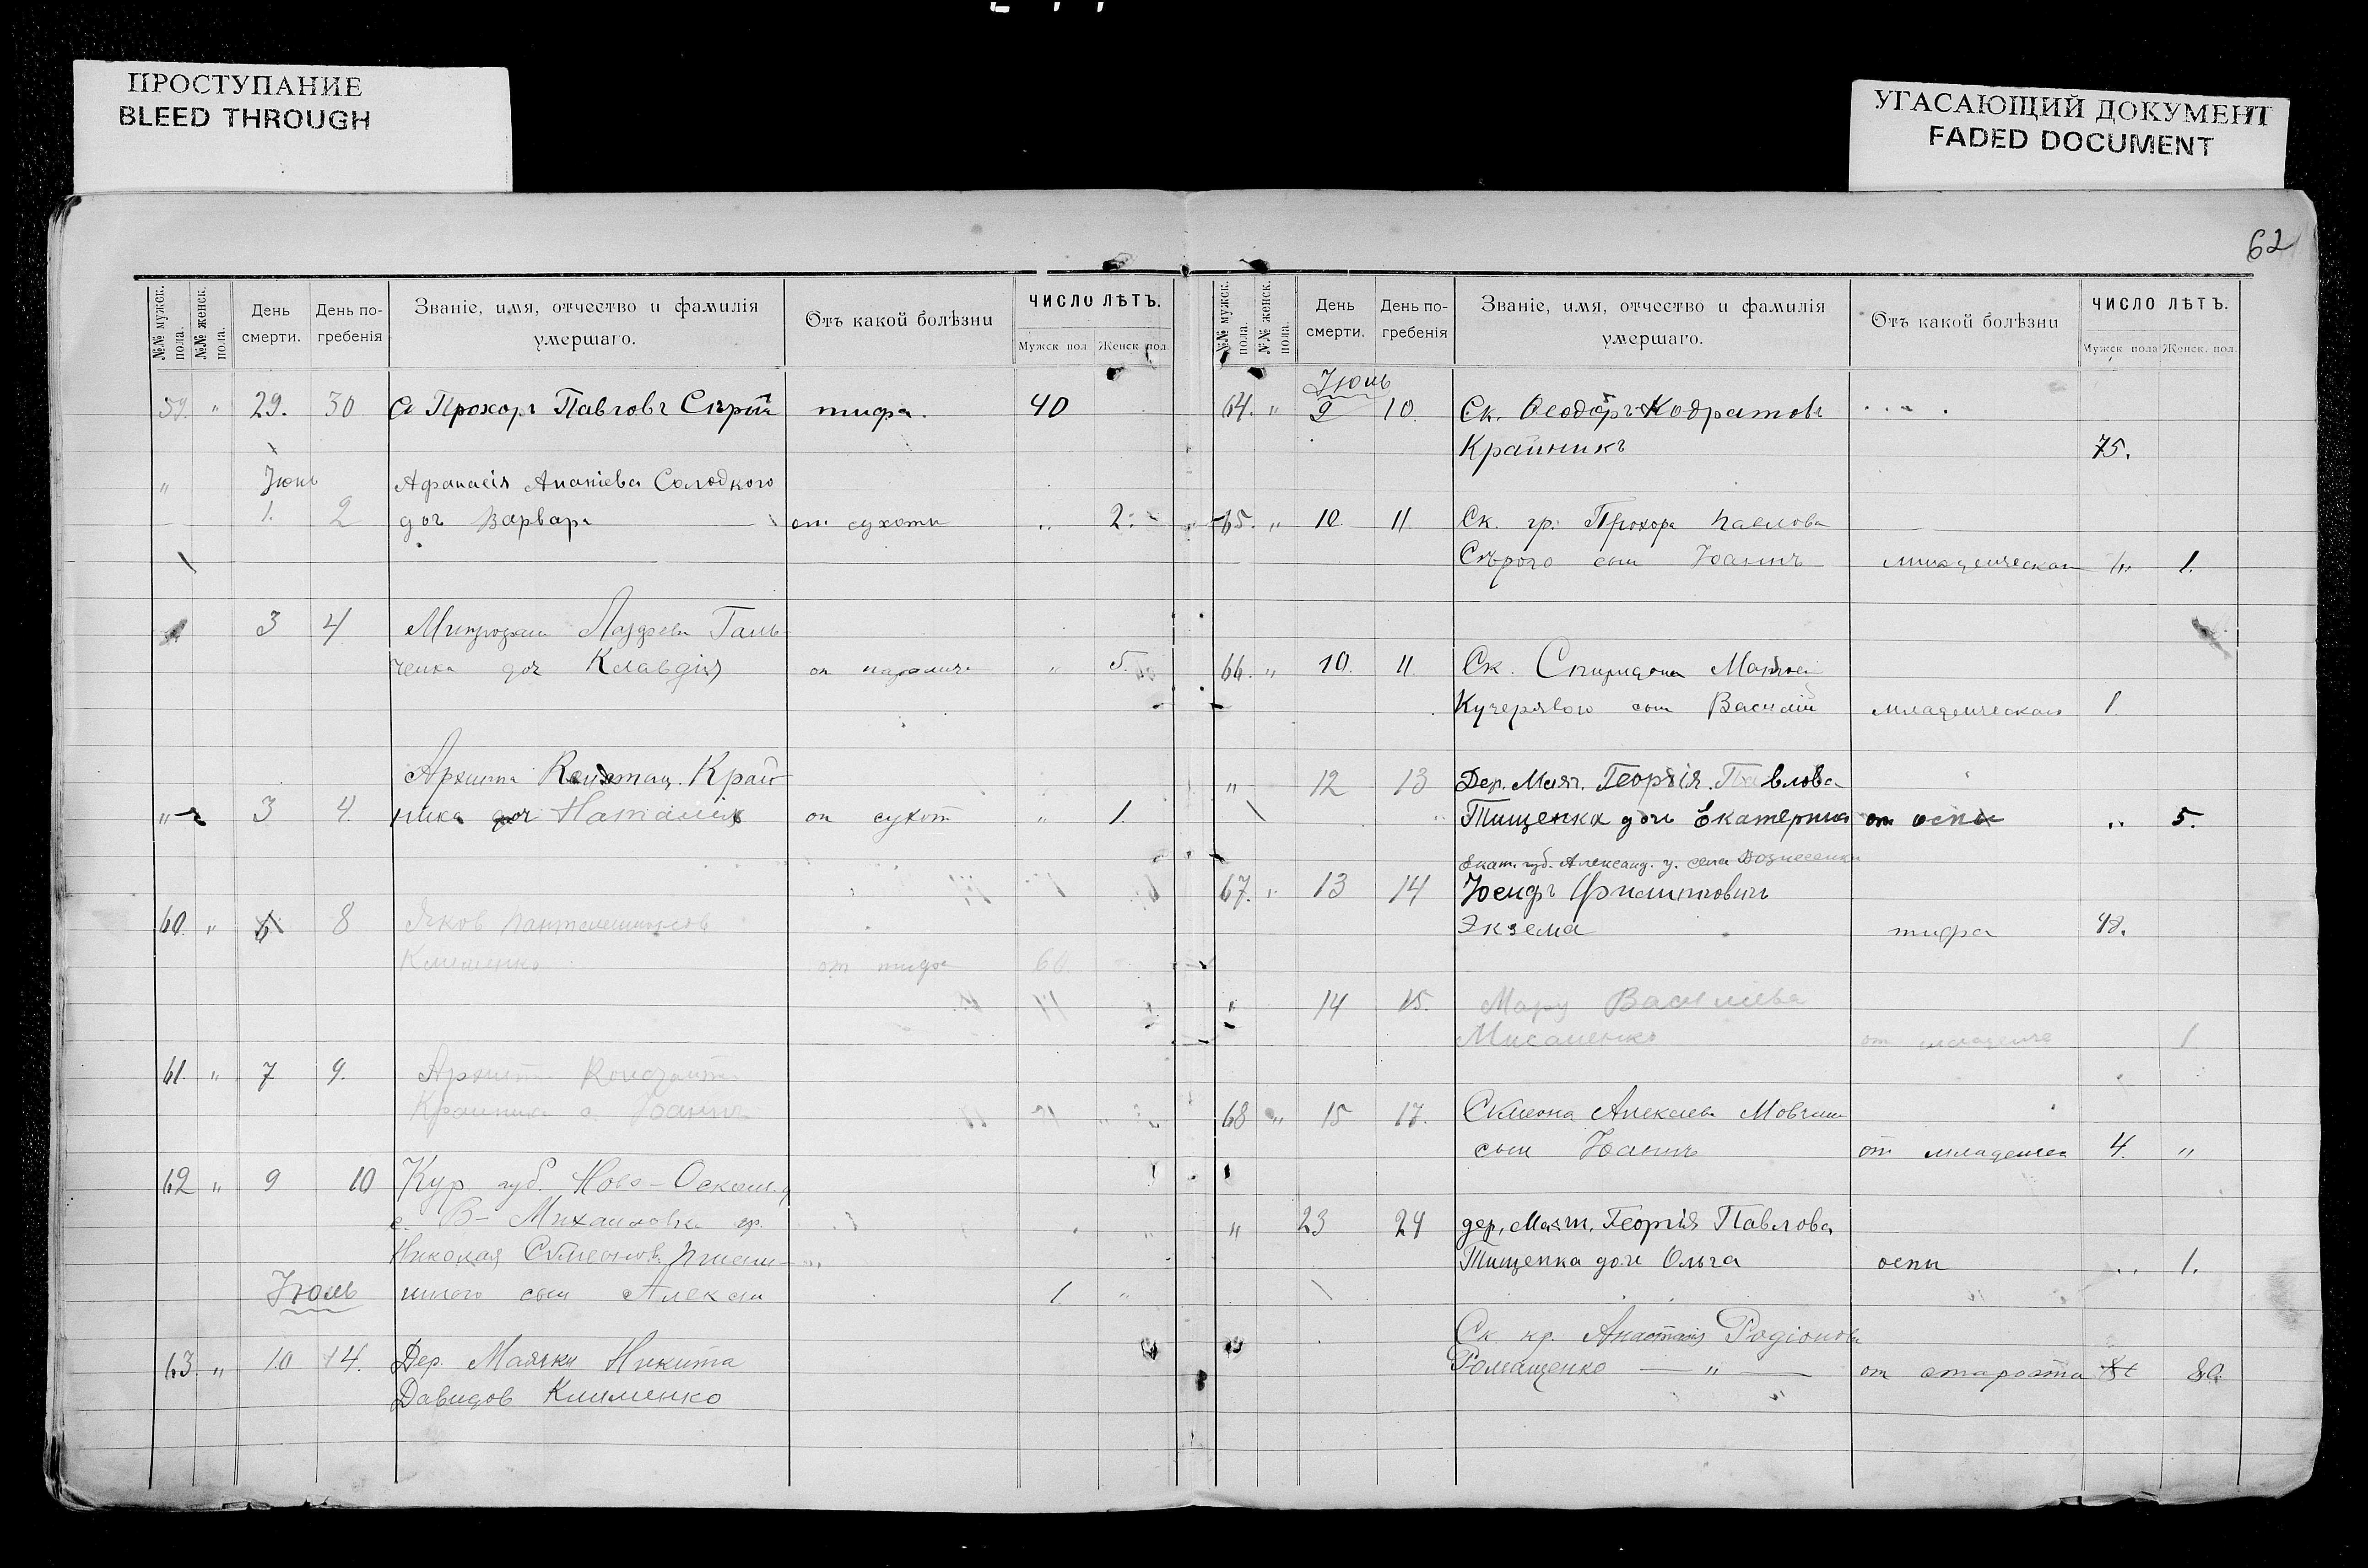 ПРОСТУПАНИЕ
BLEED THROUGH
УГАСАЮЩИЙ ДОКУМЕНТ
FADED DOCUMENT
62
№№ мужск. пола.
№№ женск. пола.
День смерти.
День погребенія
Званіе, имя, отчество и фамилія
умершаго.
Отъ какой болѣзни
ЧИСЛО ЛѢТЪ.
Мужск пол Женск пол.
59. " 29. 30 Прохоръ Павловъ Сѣрый тифа. 40
Іюнь
" Афанасія Ананіева Солодкого
1. 2 дочь Варвара от сухоты " 2.
3 4 Лазарева Галь-
ченка доч Клавдія от " 5.
Архипа Край-
" 3 4. ника доч Наталія от сухот " 1.
60. " 8 Яков Пантелеимонов
Клименко от тифа 60.
61. " 7 9. Архипа
Крайника с. Іоаннъ
62 " 9 10 Кур губ. Ново-Оскол. у
с. В-Михайловки гр.
Николая Симеонов.
Іюль сын Алексій 1. "
63. " 10 14. Дер. Маячки Никита
Давидов Клименко
№№ мужск. пола.
№№ женск. пола.
День смерти.
День погребенія
Званіе, имя, отчество и фамилія
умершаго.
Отъ какой болѣзни
ЧИСЛО ЛѢТЪ.
Мужск пола Женск. пол.
Іюль
64. " 9 10. Ск. Ѳеодоръ Кодратовъ
Крайникъ 75.
65. " 10. 11. Ск. гр. Прохора Павлова
Сѣрого сын Іоаннъ младенческая 1.
66. " 10. 11. Ск. Спиридона
Кучерявого сын Василій младенческая 1.
" 12 13 Дер. Маяч. Георгія Павлова
Тищенка дочь Екатерина от оспы " 5.
Екат. губ. Александ. у. села Вознесенки
67. " 13 14 Іосифъ Филипповичъ
Экзема тифа 48.
" 14 15. Василіева
от 1
68 " 15 17. Симона Алексѣева
сын Іоаннъ от младенчес 4. "
" 23 24 дер. Маяч. Георгія Павлова
Тищенка дочь Ольга оспы " 1.
Ск кр. Анастасія Родіонова
Ромащенко " от старости 80.